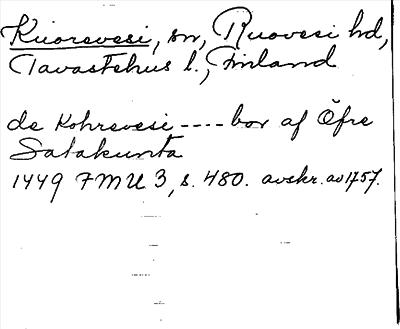 Kuorevesi, sn, Ruovesi hd,
Tavastehus l., Finland
de Kohrevesi ---- bor af Öfre
Satakunta
1449 FMU 3, s. 480. avskr. av 1757.